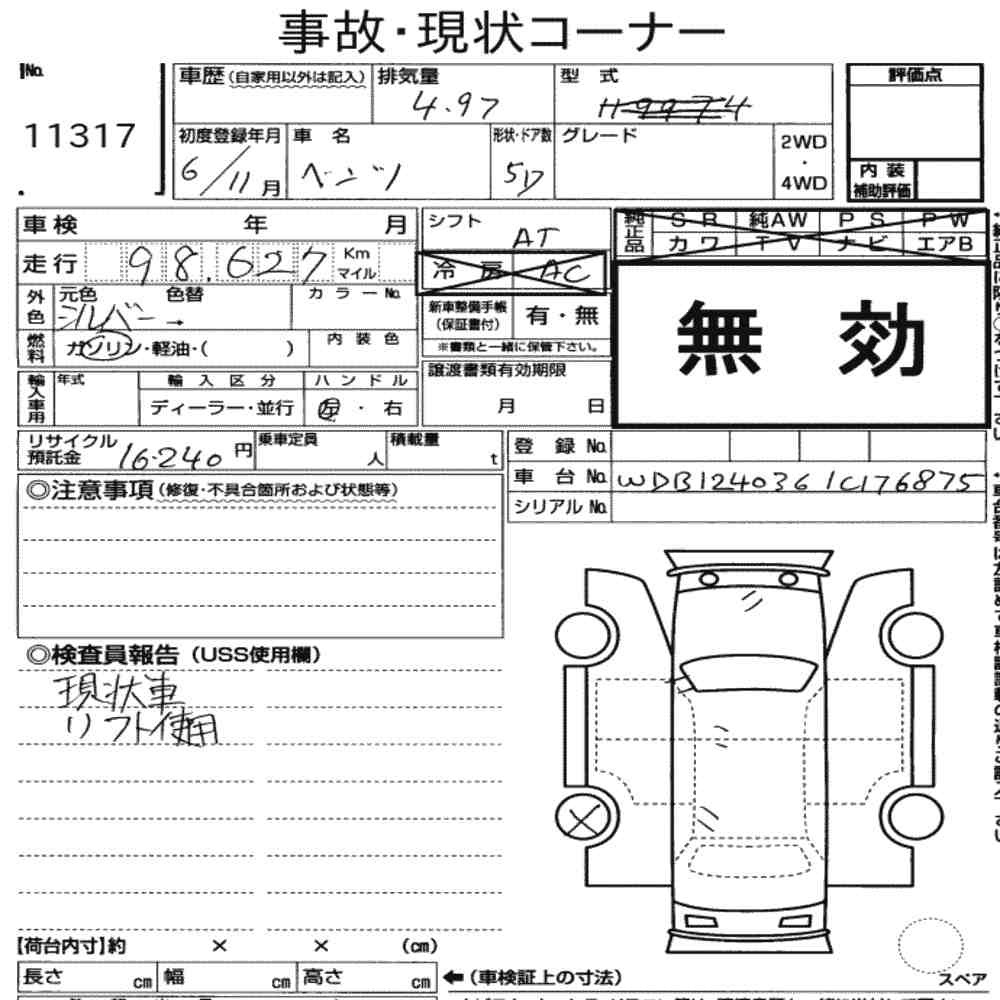 事故・現状コーナー
No.
11317
車歴（自家用以外は記入）
排気量
4.97
型 式
評価点
初度登録年月
6/11月
車 名
ベンツ
形状・ドア数
5D
グレード
2WD
・
4WD
内 装
補助評価
車検 年 月
走行 98.627 Km
マイル
シフト
AT
冷房 AC
純正品
SR 純AW PS PW
カワ TV ナビ エアB
外色
元色 色替
シルバー→
カラーNo.
新車整備手帳
（保証書付）
有・無
※書類と一緒に保管下さい。
無 効
燃料
ガソリン・軽油・( )
内装色
輸入車用
年式
輸入区分
ディーラー・並行
ハンドル
左・右
譲渡書類有効期限
月 日
リサイクル
預託金 16.240 円
乗車定員
人
積載量
t
登 録 No.
車 台 No. WDB124036 1C176875
シリアル No.
◎注意事項（修復・不具合箇所および状態等）
◎検査員報告（USS使用欄）
現状車
リフト使用
【荷台内寸】約 × × （cm）
長さ cm 幅 cm 高さ cm
←（車検証上の寸法）
スペア